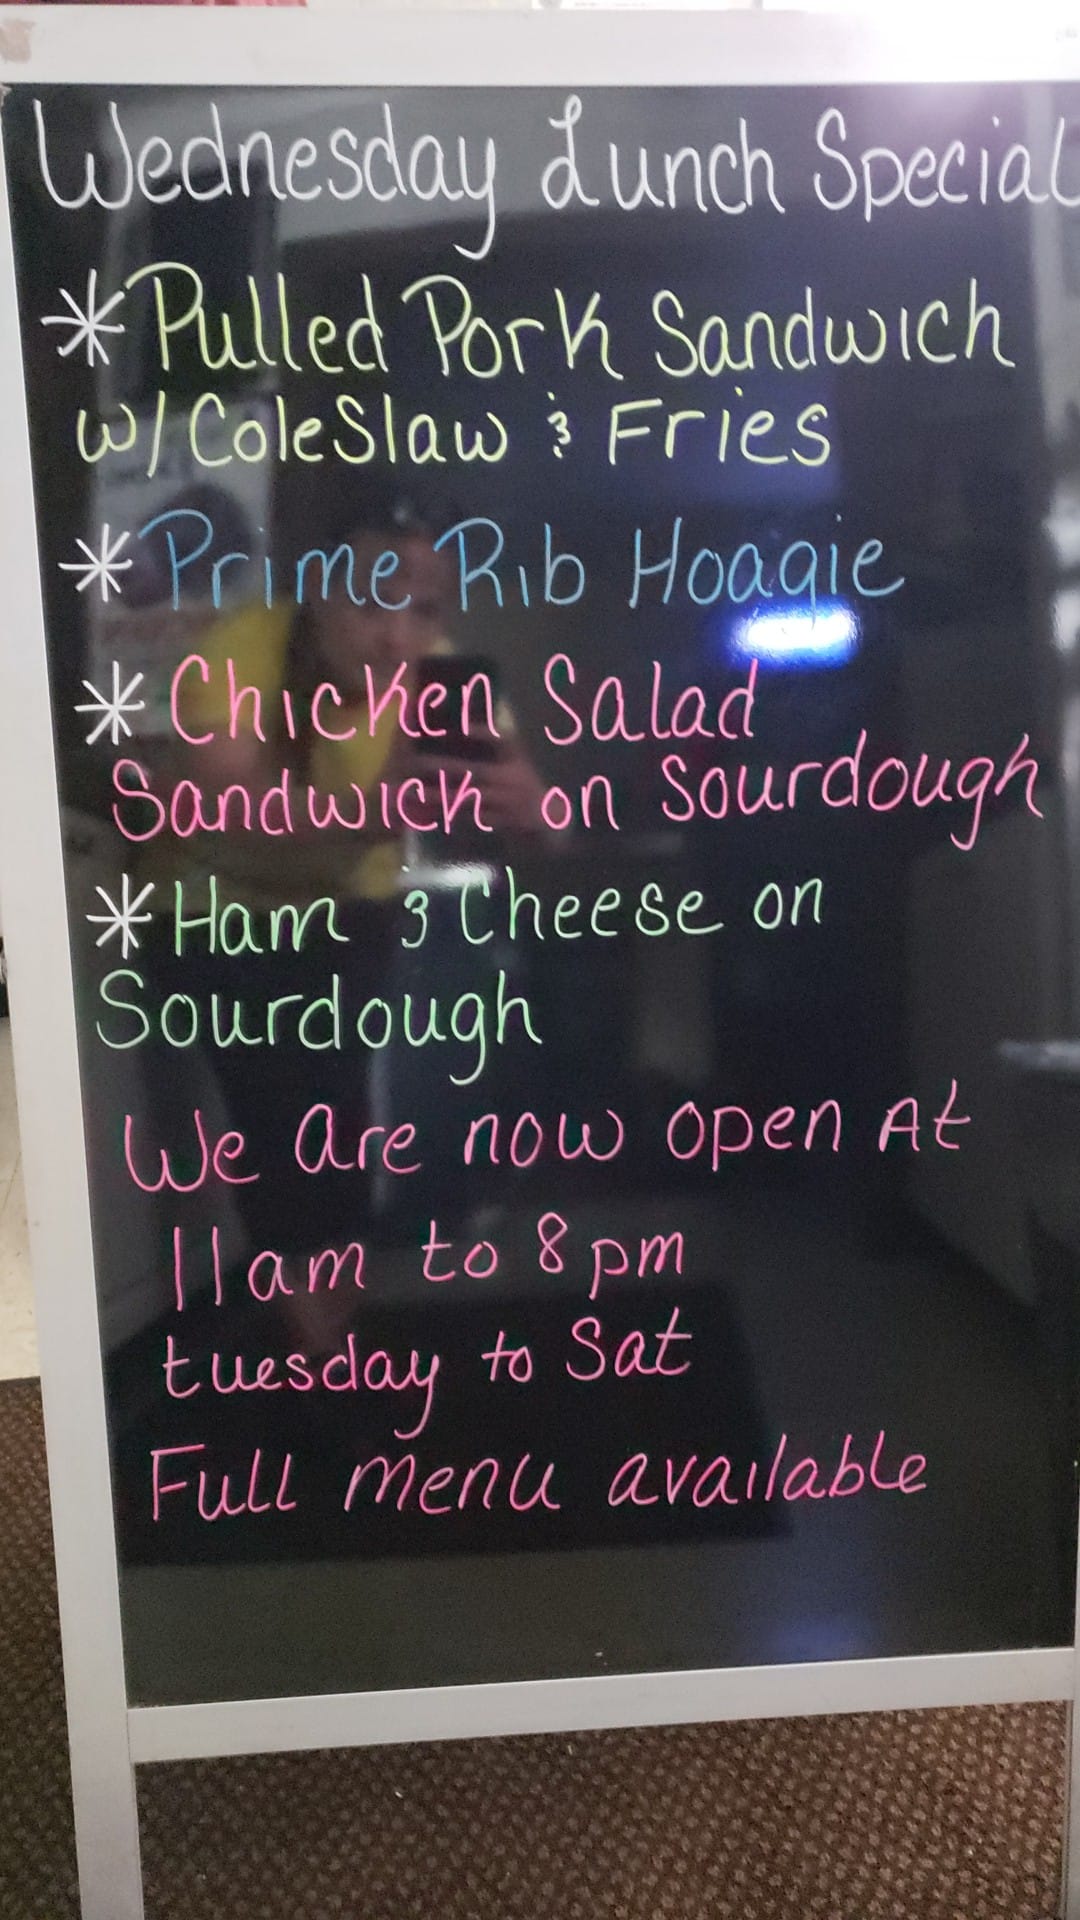 Wednesday Lunch Special
* Pulled Pork Sandwich
w/ ColeSlaw & Fries
* Prime Rib Hoagie
* Chicken Salad
Sandwich on Sourdough
* Ham & Cheese on
Sourdough
We are now open At
11am to 8pm
tuesday to Sat
Full menu available